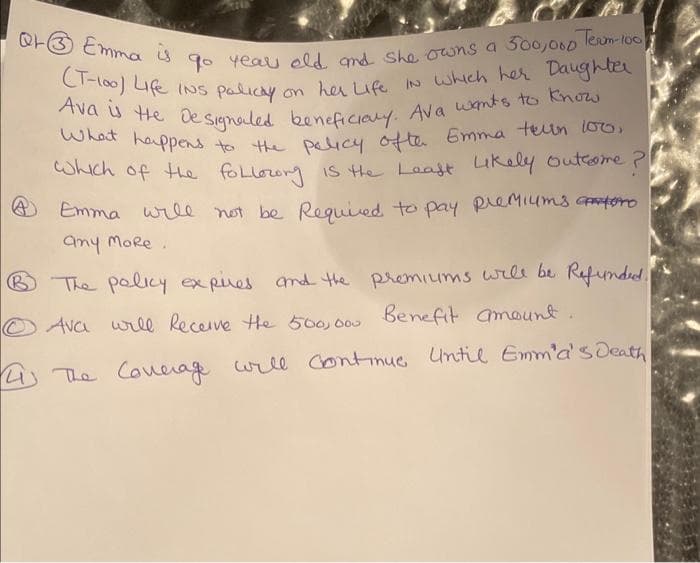 Q1-③ Emma is 90 years old and she owns a 500,000 Term-100
(T-100) Life INS policy on her Life in which her Daughter
Ava is the Designated beneficiary. Ava wants to Know
What happens to the policy after Emma turn 100,
Which of the following is the Least Likely outcome?
Ⓐ Emma will not be Required to pay premiums
any more.
Ⓑ The policy expires and the premiums will be Refunded.
Ⓒ Ava will Receive the 500,000 Benefit amount.
④ The Coverage will Continue Until Emm'a's Death